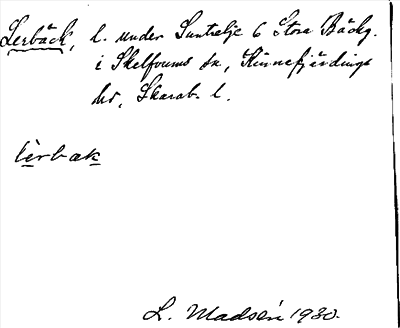 Lerbäck, l. under Suntelje 6 Stora Bäckg.
i Skelfvums sn, Kinnefjärdings
hd, Skarab. l.
lèrbak
L. Madsén 1930.